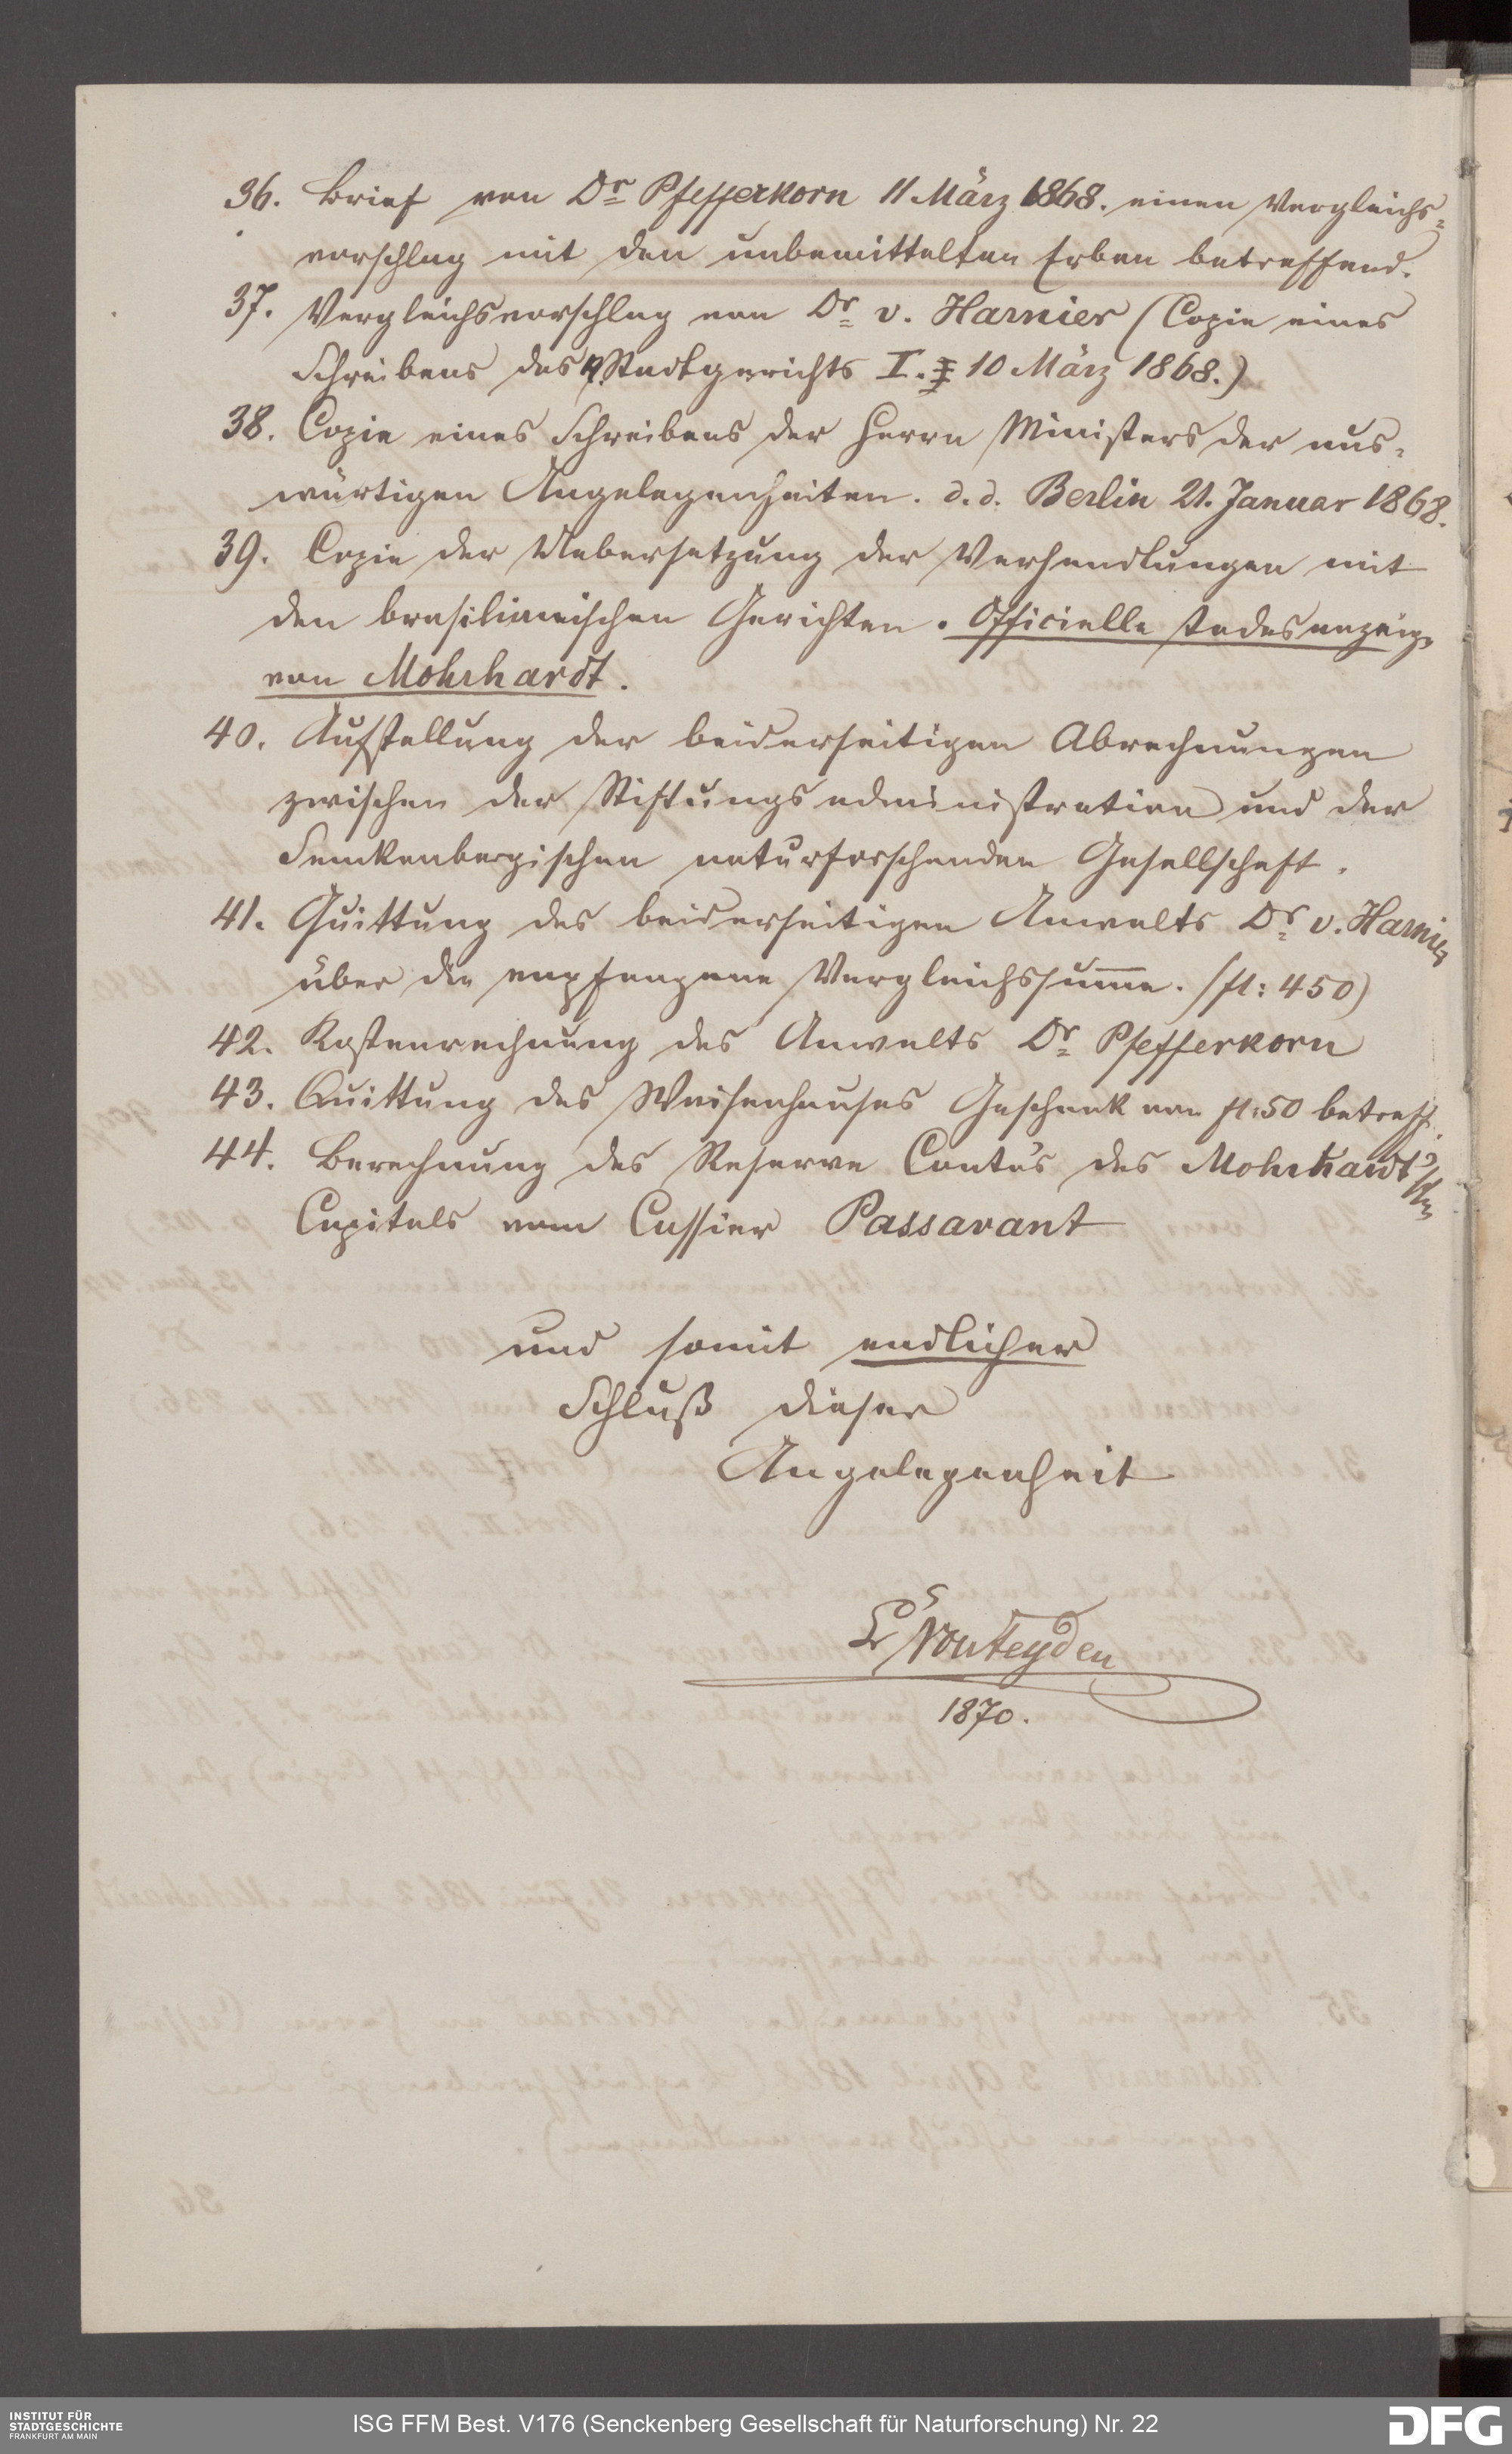 36. Brief von Dr Pfefferkorn 11 März 1868. einen Vergleichs-
vorschlag mit den unbemittelten Erben betreffend.
37. Vergleichsvorschlag von Dr v. Harnier (Copie eines
Schreibens des Stadtgerichts I. 10 März 1868.)
38. Copie eines Schreibens der Herrn Ministers der aus-
wärtigen Angelegenheiten. d. d. Berlin 21. Januar 1868.
39. Copie der Uebersetzung der Verhandlungen mit
den brasilianischen Gerichten. Officielle Todesanzeige
von Mohrhardt.
40. Aufstellung der beiderseitigen Abrechnungen
zwischen der Stiftungsadministration und der
Senckenbergischen naturforschenden Gesellschaft.
41. Quittung des beiderseitigen Anwalts Dr v. Harnier
über die empfangene Vergleichssumme. (fl: 450)
42. Kostenrechnung des Anwalts Dr Pfefferkorn
43. Quittung des Waisenhauses Geschenk von fl: 50 betreff.
44. Berechnung des Reserve Conto's des Mohrhardt'schen
Capitals vom Cassier Passavant
und somit endlicher
Schluß dieser
Angelegenheit
Dr von Heyden
1870.
INSTITUT FÜR
STADTGESCHICHTE
FRANKFURT AM MAIN
ISG FFM Best. V176 (Senckenberg Gesellschaft für Naturforschung) Nr. 22
DFG